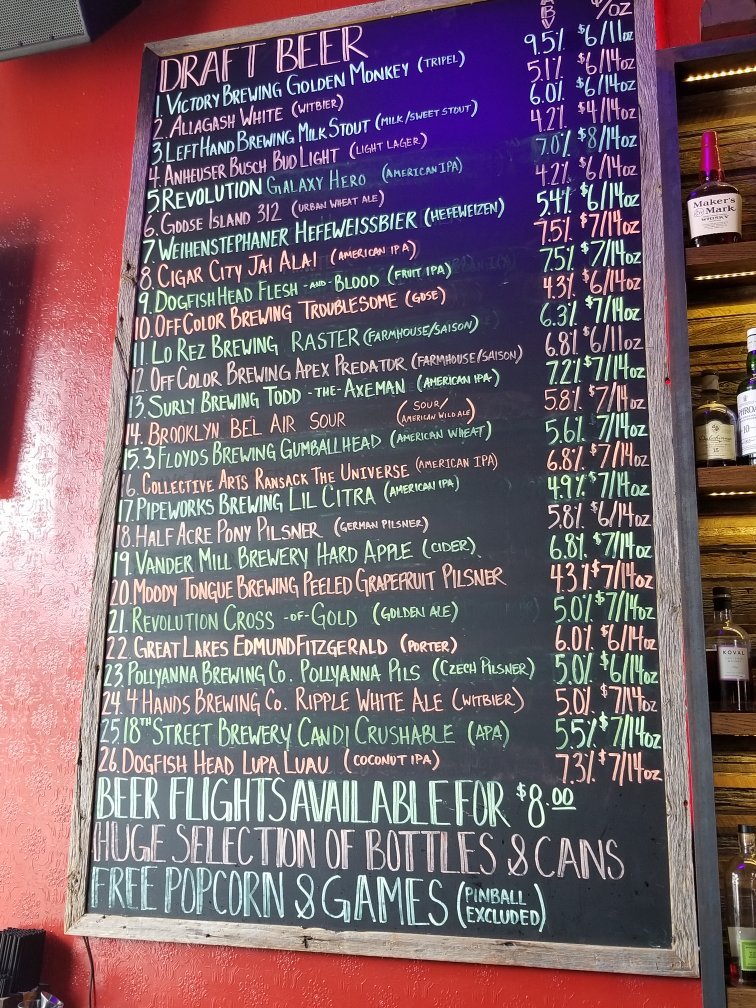 DRAFT BEER ABV $/OZ
1. VICTORY BREWING GOLDEN MONKEY (TRIPEL) 9.5% $6/11oz
2. ALLAGASH WHITE (WITBIER) 5.1% $6/14oz
3. LEFT HAND BREWING MILK STOUT (MILK/SWEET STOUT) 6.0% $6/14oz
4. ANHEUSER BUSCH BUD LIGHT (LIGHT LAGER) 4.2% $4/14oz
5 REVOLUTION GALAXY HERO (AMERICAN IPA) 7.0% $8/14oz
6. GOOSE ISLAND 312 (URBAN WHEAT ALE) 4.2% $6/14oz
7. WEIHENSTEPHANER HEFEWEISSBIER (HEFEWEIZEN) 5.4% $6/14oz
8. CIGAR CITY JAI ALAI (AMERICAN IPA) 7.5% $7/14oz
9. DOGFISH HEAD FLESH -AND- BLOOD (FRUIT IPA) 7.5% $7/14oz
10. OFF COLOR BREWING TROUBLESOME (GOSE) 4.3% $6/14oz
11. LO REZ BREWING RASTER (FARMHOUSE/SAISON) 6.3% $7/14oz
12. OFF COLOR BREWING APEX PREDATOR (FARMHOUSE/SAISON) 6.8% $6/11oz
13. SURLY BREWING TODD -THE- AXEMAN (AMERICAN IPA) 7.2% $7/14oz
14. BROOKLYN BEL AIR SOUR (SOUR/AMERICAN WILD ALE) 5.8% $7/14oz
15. 3 FLOYDS BREWING GUMBALLHEAD (AMERICAN WHEAT) 5.6% $7/14oz
16. COLLECTIVE ARTS RANSACK THE UNIVERSE (AMERICAN IPA) 6.8% $7/14oz
17. PIPEWORKS BREWING LIL CITRA (AMERICAN IPA) 4.9% $7/14oz
18. HALF ACRE PONY PILSNER (GERMAN PILSNER) 5.8% $6/14oz
19. VANDER MILL BREWERY HARD APPLE (CIDER) 6.8% $7/14oz
20. MOODY TONGUE BREWING PEELED GRAPEFRUIT PILSNER 4.3% $7/14oz
21. REVOLUTION CROSS -OF- GOLD (GOLDEN ALE) 5.0% $7/14oz
22. GREAT LAKES EDMUND FITZGERALD (PORTER) 6.0% $6/14oz
23. POLLYANNA BREWING CO. POLLYANNA PILS (CZECH PILSNER) 5.0% $6/14oz
24. 4 HANDS BREWING CO. RIPPLE WHITE ALE (WITBIER) 5.0% $7/14oz
25. 18TH STREET BREWERY CANDI CRUSHABLE (APA) 5.5% $7/14oz
26. DOGFISH HEAD LUPA LUAU (COCONUT IPA) 7.3% $7/14oz
BEER FLIGHTS AVAILABLE FOR $8.00
HUGE SELECTION OF BOTTLES & CANS
FREE POPCORN & GAMES (PINBALL EXCLUDED)
Maker's Mark
WHISKY
KOVAL